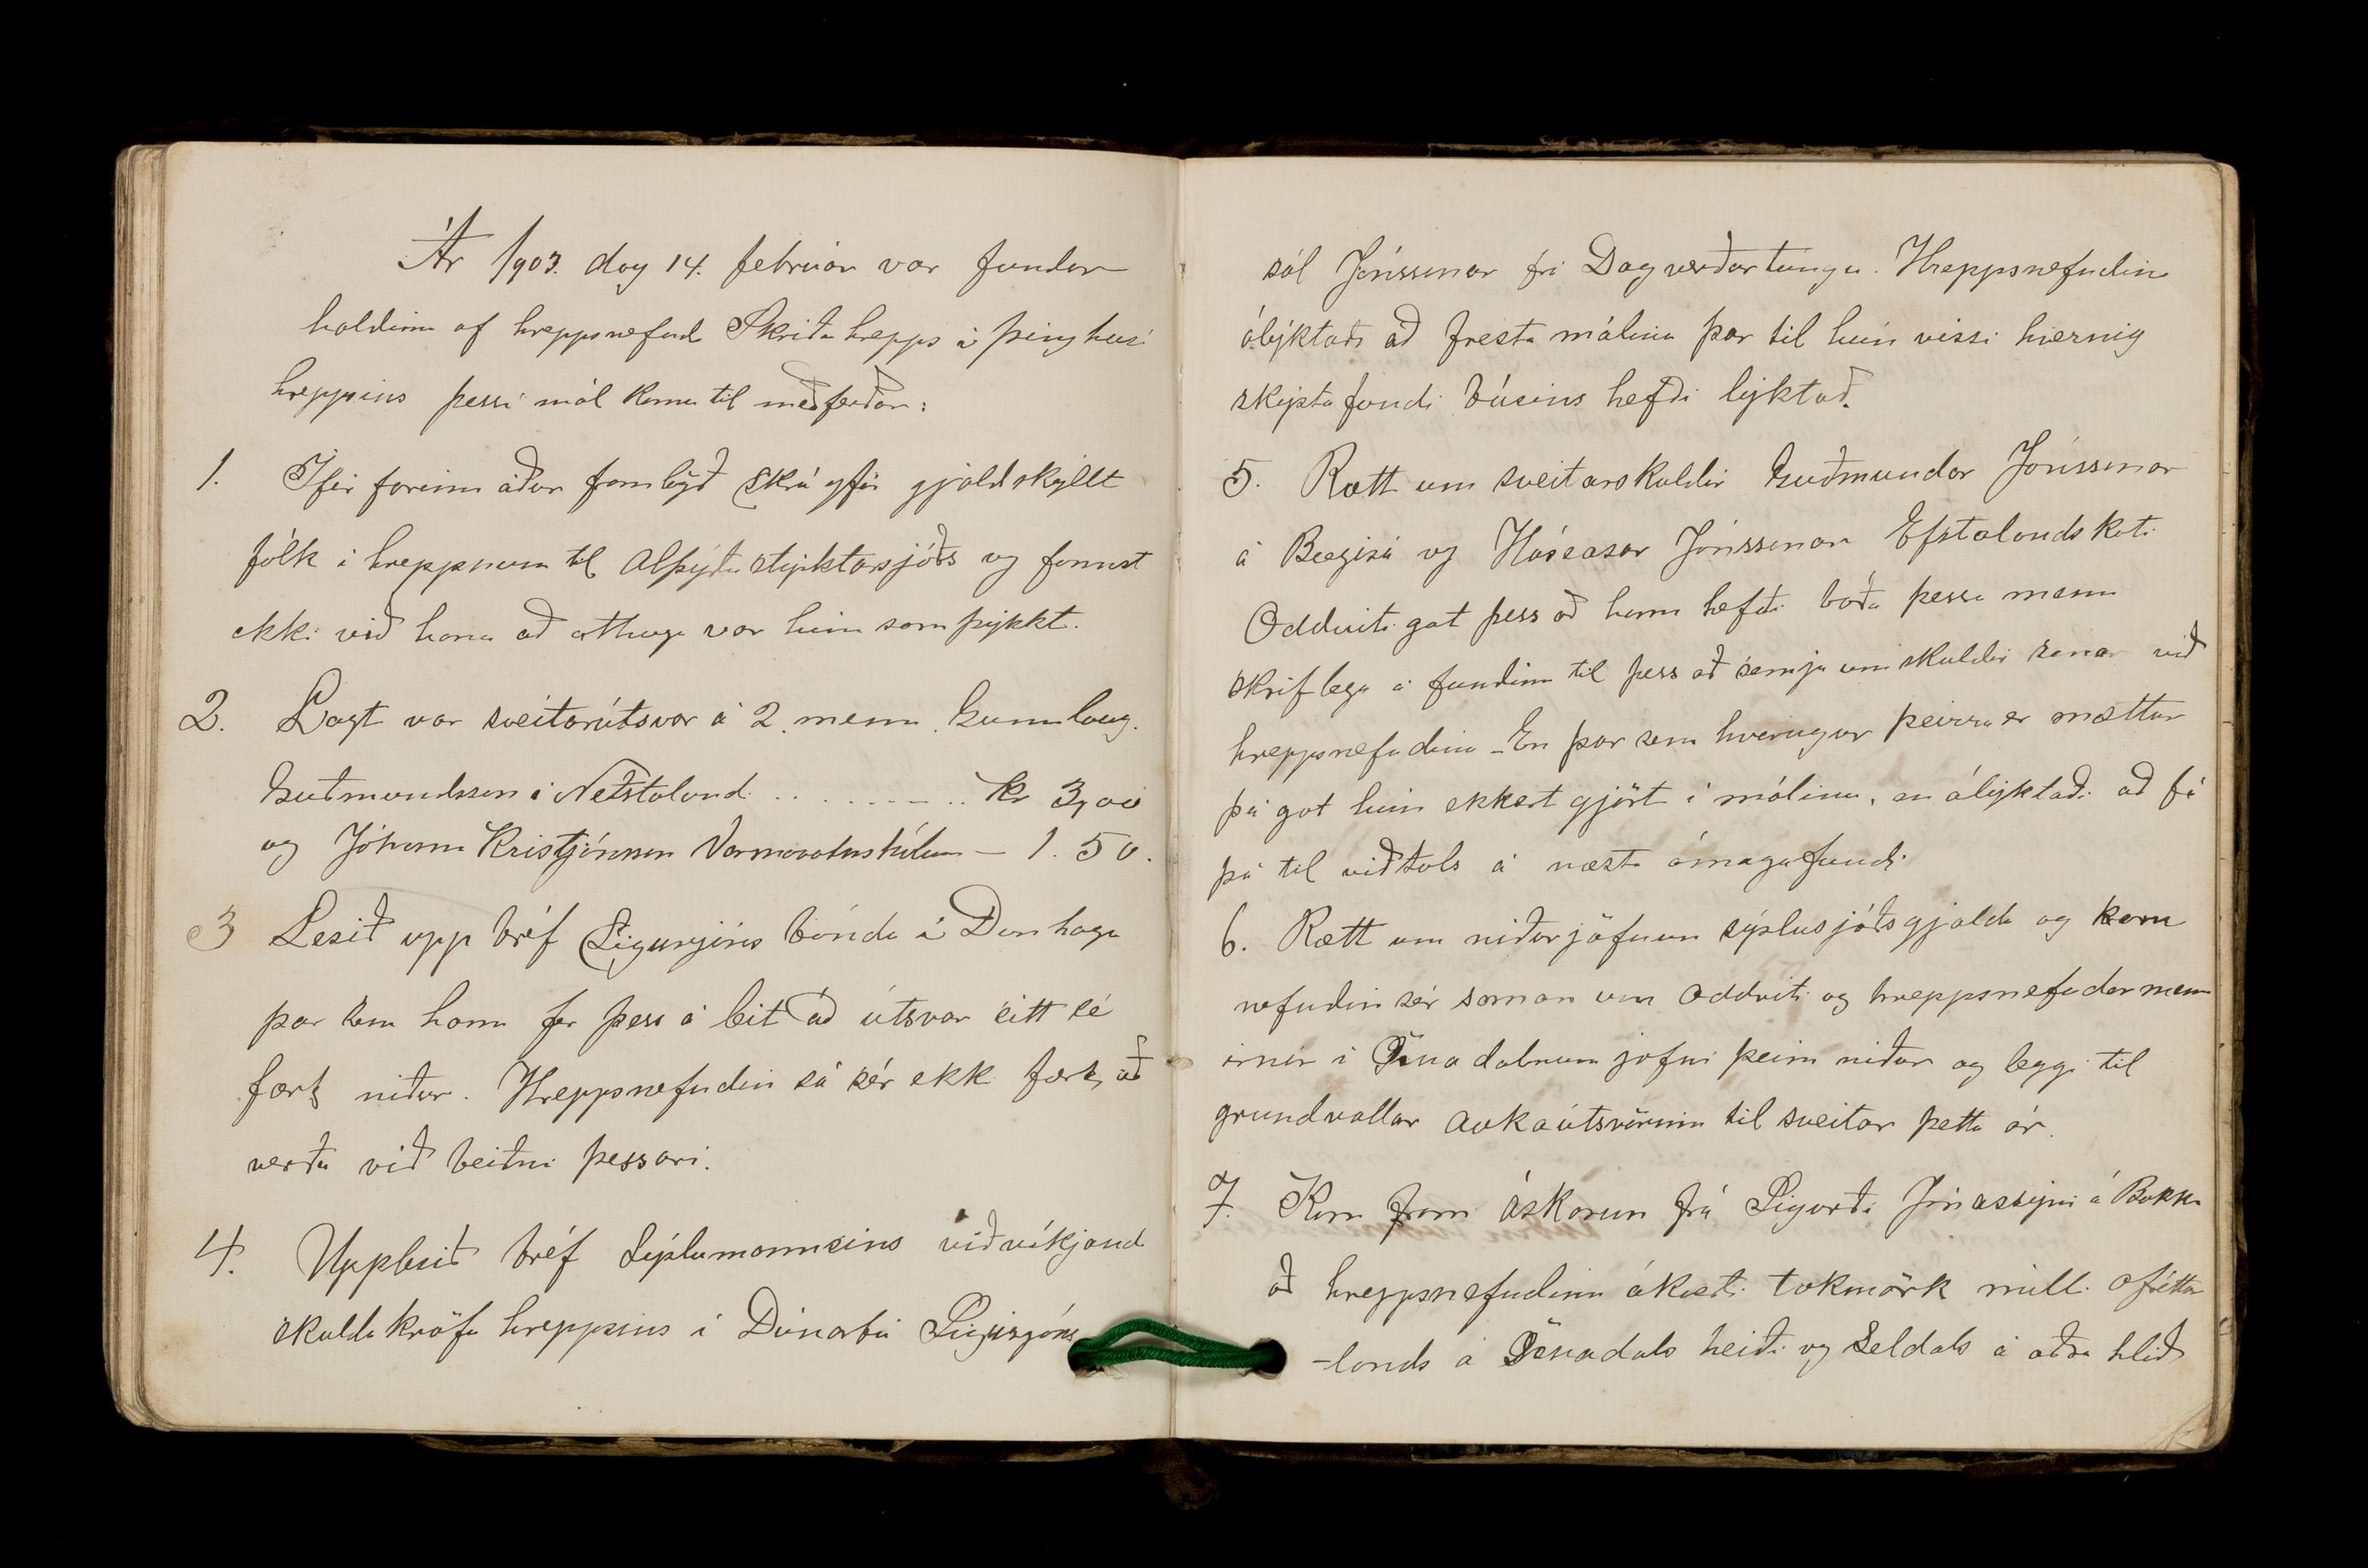 Ár 1903. dag 14. februar var fundur
haldinn af hreppsnefnd Skriðuhrepps á þinghúsi
hreppsins þessi mál komu til meðferðar:
1. Ifir farinn áður framlögð skrá yfir gjaldskyllt
fólk í hreppnum til Alþýðustyktarsjóðs og fannst
ekki við hana að athuga var hún samþykkt.
2. Lagt var sveitarútsvar á 2. menn Gunnlaug.
Guðmundsson i Neðstalandi ......... kr 3,00
og Jóhann Kristjánsson Varmavatnshólum – 1.50.
3 Lesið upp bréf Sigurjóns bónda í Dunhaga
þar sem hann fer þess á leit að útsvar sitt sé
fært niður. Hreppsnefndin sá sér ekki fært að
verða við beiðni þessari.
4. Upplesið bréf Sýslumannsins viðvíkjandi
skuldakröfu hreppsins í Dánarbú Sigurjóns
sál Jónssonar frá Dagverðartungu. Hreppsnefndin
ályktaði að fresta málinu þar til hún vissi hvernig
skiptafundi búsins hefði lyktað.
5. Rætt um sveitarskuldir Guðmundar Jónssonar
á Bægisá og Hóseasar Jónssonar Efstalandskoti
Oddviti gat þess að hann hefði boða þessa menn
skriflega á fundinn til þess að semja um skuldir sínar við
hreppsnefndina – En þar sem hverugur þeirra er mættur
þá gat hún ekkert gjört í málinu, en ályktaði að fá
þá til viðtals á næsta ómagafundi
6. Rætt um niðurjöfnun sýslusjóðsgjalda og kom
nefndin sér saman um Oddviti og hreppsnefndar menn
irnir i Öxnadalnum jafni þeim niður og leggi til
grundvallar aukaútsvörunum til sveitar þetta ár.
7. Kom fram áskorun frá Sigurði Jónassyni á Bakka
að hreppsnefndinn ákveði takmörk milli afréttar
-lands á Öxnadals heiði og Seldals á aðra hlið